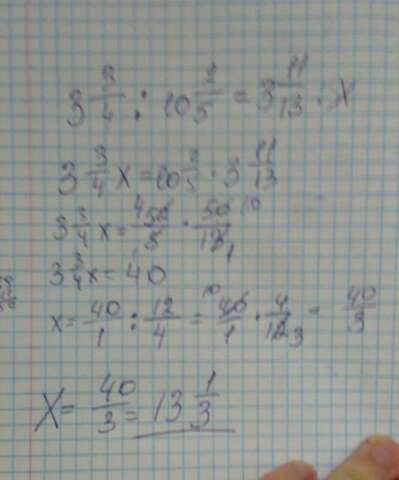 3 3/4 : 10 2/5 = 3 11/13 : x
3 3/4 x = 10 2/5 · 3 11/13
3 3/4 x = 52/5 · 50/13
3 3/4 x = 40
x = 40/1 : 12/4 = 40/1 · 4/12 = 40/3
x = 40/3 = 13 1/3